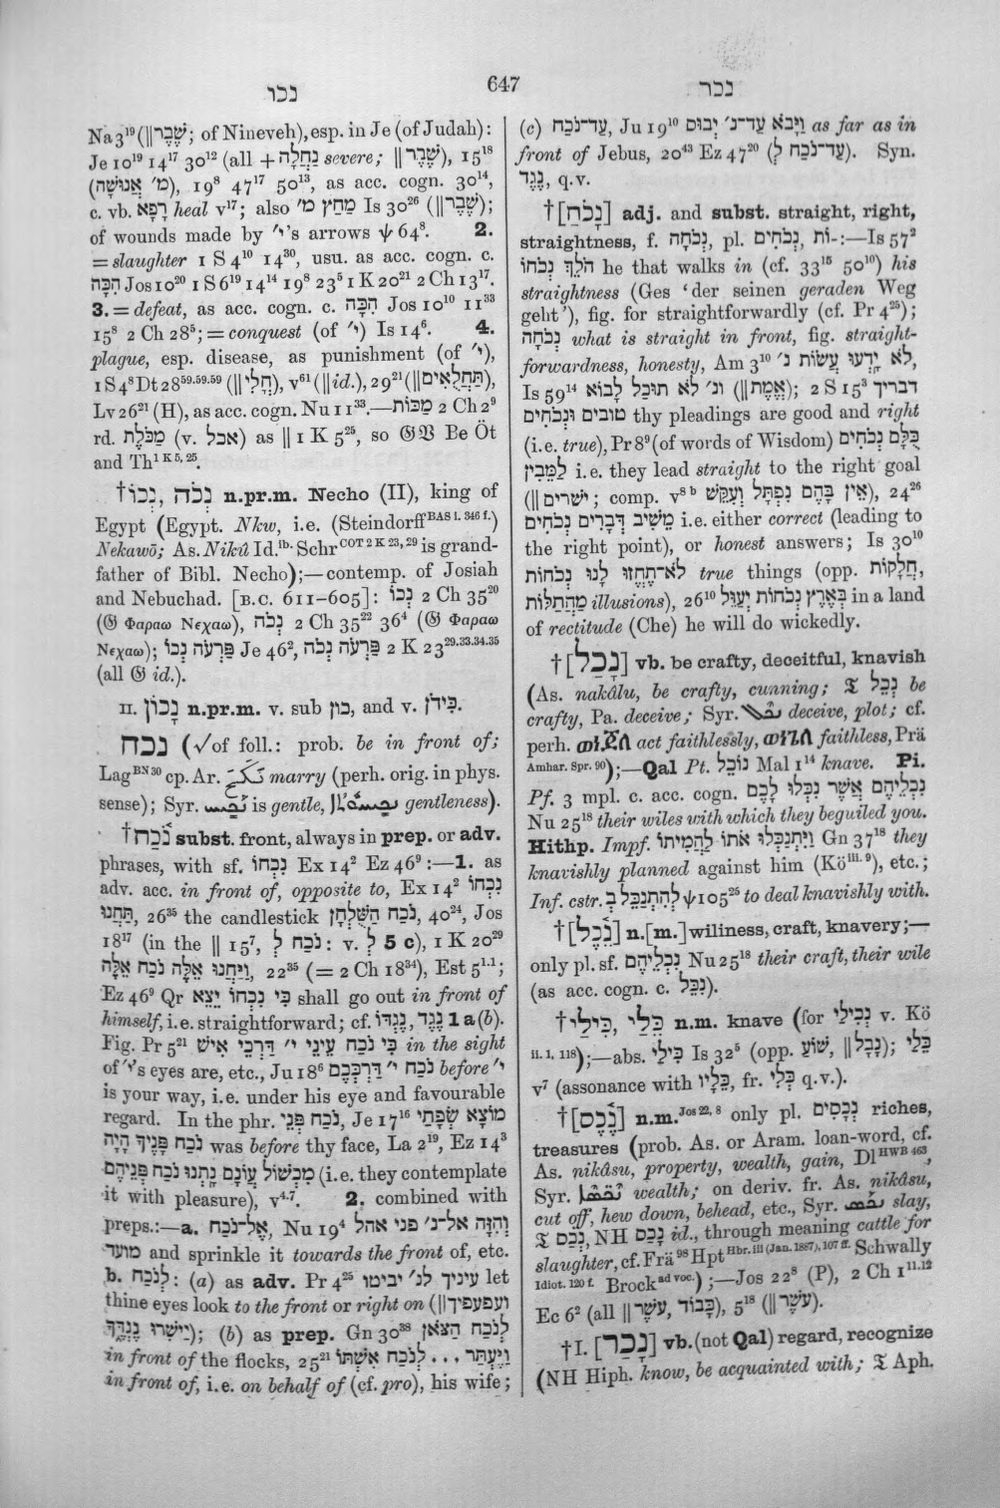 נכו
647
נכר
Na 3¹⁹ (‖ שֶׁבֶר; of Nineveh), esp. in Je (of Judah):
Je 10¹⁹ 14¹⁷ 30¹² (all + נַחְלָה severe; ‖ שֶׁבֶר), 15¹⁸
(מ׳ אֲנוּשָׁה), 19⁸ 47¹⁷ 50¹³, as acc. cogn. 30¹⁴,
c. vb. רָפָא heal v¹⁷; also מַחַץ מ׳ Is 30²⁶ (‖ שֶׁבֶר);
of wounds made by ״י's arrows ψ 64⁸. 2.
= slaughter 1 S 4¹⁰ 14³⁰, usu. as acc. cogn. c.
הִכָּה Jos 10²⁰ 1 S 6¹⁹ 14¹⁴ 19⁸ 23⁵ 1 K 20²¹ 2 Ch 13¹⁷.
3. = defeat, as acc. cogn. c. הִכָּה Jos 10¹⁰ 11³³
15⁸ 2 Ch 28⁵; = conquest (of ״י) Is 14⁶. 4.
plague, esp. disease, as punishment (of ״י),
1 S 4⁸ Dt 28⁵⁹·⁵⁹·⁵⁹ (‖ חֳלִי), v⁶¹ (‖ id.), 29²¹ (‖ תַּחֲלֻאִים),
Lv 26²¹ (H), as acc. cogn. Nu 11³³.—מַכּוֹת 2 Ch 2⁹
rd. מַכֹּלֶת (v. אכל) as ‖ 1 K 5²⁵, so 𝔊 𝔙 Be Öt
and Th¹ ᴷ ⁵, ²⁵.
†נְכוֹ, נְכֹה n.pr.m. Necho (II), king of
Egypt (Egypt. Nkw, i.e. (Steindorff BAS I. 346 f.)
Nekawō; As. Nikû Id. ib. Schr COT 2 K 23, 29 is grand-
father of Bibl. Necho);—contemp. of Josiah
and Nebuchad. [B.C. 611–605]: נְכוֹ 2 Ch 35²⁰
(𝔊 Φαραω Νεχαω), נְכֹה 2 Ch 35²² 36⁴ (𝔊 Φαραω
Νεχαω); פַּרְעֹה נְכוֹ Je 46², פַּרְעֹה נְכֹה 2 K 23²⁹·³³·³⁴·³⁵
(all 𝔊 id.).
II. נָכוֹן n.pr.m. v. sub כון, and v. כִּידֹן.
נכח (√ of foll.: prob. be in front of;
Lag BN 30 cp. Ar. نَكَحَ marry (perh. orig. in phys.
sense); Syr. is gentle, gentleness).
†נֹכַח subst. front, always in prep. or adv.
phrases, with sf. נִכְחוֹ Ex 14² Ez 46⁹:—1. as
adv. acc. in front of, opposite to, Ex 14² נִכְחוֹ
תַּחֲנוּ, 26³⁵ the candlestick נֹכַח הַשֻּׁלְחָן, 40²⁴, Jos
18¹⁷ (in the ‖ 15⁷, נֹכַח לְ: v. לְ 5 c), 1 K 20²⁹
וַיַּחֲנוּ אֵלֶּה נֹכַח אֵלֶּה, 22³⁵ (= 2 Ch 18³⁴), Est 5¹·¹;
Ez 46⁹ Qr כִּי נִכְחוֹ יֵצֵא shall go out in front of
himself, i.e. straightforward; cf. נֶגֶד, נֶגְדּוֹ 1 a (b).
Fig. Pr 5²¹ כִּי נֹכַח עֵינֵי י״ דַּרְכֵי אִישׁ in the sight
of ״י's eyes are, etc., Ju 18⁶ נֹכַח י״ דַּרְכְּכֶם before ״י
is your way, i.e. under his eye and favourable
regard. In the phr. נֹכַח פְּנֵי, Je 17¹⁶ מוֹצָא שְׂפָתַי
נֹכַח פָּנֶיךָ הָיָה was before thy face, La 2¹⁹, Ez 14³
מִכְשׁוֹל עֲוֹנָם נָתְנוּ נֹכַח פְּנֵיהֶם (i.e. they contemplate
it with pleasure), v⁴·⁷. 2. combined with
preps.:—a. אֶל־נֹכַח, Nu 19⁴ וְהִזָּה אל־נ׳ פני אהל
מועד and sprinkle it towards the front of, etc.
b. לְנֹכַח: (a) as adv. Pr 4²⁵ עיניך לנ׳ יביטו let
thine eyes look to the front or right on (‖ ועפעפיך
יַיְשִׁרוּ נֶגְדֶּךָ); (b) as prep. Gn 30³⁸ לְנֹכַח הַצֹּאן
in front of the flocks, 25²¹ וַיֶּעְתַּר ... לְנֹכַח אִשְׁתּוֹ
in front of, i.e. on behalf of (cf. pro), his wife;
(c) עַד־נֹכַח, Ju 19¹⁰ וַיָּבֹא עַד־נ׳ יְבוּס as far as in
front of Jebus, 20⁴³ Ez 47²⁰ (עַד־נֹכַח לְ). Syn.
נֶגֶד, q.v.
†[נָכֹחַ] adj. and subst. straight, right,
straightness, f. נְכֹחָה, pl. נְכֹחִים, -וֹת:—Is 57²
הֹלֵךְ נְכֹחוֹ he that walks in (cf. 33¹⁵ 50¹⁰) his
straightness (Ges 'der seinen geraden Weg
geht'), fig. for straightforwardly (cf. Pr 4²⁵);
נְכֹחָה what is straight in front, fig. straight-
forwardness, honesty, Am 3¹⁰ לֹא יָדְעוּ עֲשׂוֹת נ׳,
Is 59¹⁴ ונ׳ לֹא תוּכַל לָבוֹא (‖ אֱמֶת); 2 S 15³ דבריך
טובים וּנְכֹחִים thy pleadings are good and right
(i.e. true), Pr 8⁹ (of words of Wisdom) כֻּלָּם נְכֹחִים
לַמֵּבִין i.e. they lead straight to the right goal
(‖ ישרים; comp. v⁸ ᵇ אֵין בָּהֶם נִפְתָּל וְעִקֵּשׁ), 24²⁶
מֵשִׁיב דְּבָרִים נְכֹחִים i.e. either correct (leading to
the right point), or honest answers; Is 30¹⁰
לֹא־תֶחֱזוּ לָנוּ נְכֹחוֹת true things (opp. חֲלָקוֹת,
מַהֲתַלּוֹת illusions), 26¹⁰ בְּאֶרֶץ נְכֹחוֹת יְעַוֵּל in a land
of rectitude (Che) he will do wickedly.
†[נָכַל] vb. be crafty, deceitful, knavish
(As. nakâlu, be crafty, cunning; 𝔗 נְכַל be
crafty, Pa. deceive; Syr. deceive, plot; cf.
perh. act faithlessly, faithless, Prä
Amhar. Spr. 90);—Qal Pt. נוֹכֵל Mal 1¹⁴ knave. Pi.
Pf. 3 mpl. c. acc. cogn. נִכְלֵיהֶם אֲשֶׁר נִכְּלוּ לָכֶם
Nu 25¹⁸ their wiles with which they beguiled you.
Hithp. Impf. וַיִּתְנַכְּלוּ אֹתוֹ לַהֲמִיתוֹ Gn 37¹⁸ they
knavishly planned against him (Kö iii. 9), etc.;
Inf. cstr. לְהִתְנַכֵּל בְּ ψ 105²⁵ to deal knavishly with.
†[נֵכֶל] n.[m.] wiliness, craft, knavery;—
only pl. sf. נִכְלֵיהֶם Nu 25¹⁸ their craft, their wile
(as acc. cogn. c. נִכֵּל).
†כֵּלַי, כִּילַי n.m. knave (for נְכִילַי v. Kö
ii. 1, 118);—abs. כִּילַי Is 32⁵ (opp. שׁוֹעַ, ‖ נָבָל); כֵּלַי
v⁷ (assonance with כֵּלָיו, fr. כְּלִי q.v.).
†[נֶכֶס] n.m. Jos 22, 8 only pl. נְכָסִים riches,
treasures (prob. As. or Aram. loan-word, cf.
As. nikâsu, property, wealth, gain, Dl HWB 463,
Syr. wealth; on deriv. fr. As. nikâsu,
cut off, hew down, behead, etc., Syr. slay,
𝔗 נְכַס, NH נָכַס id., through meaning cattle for
slaughter, cf. Frä 98 Hpt Hbr. iii (Jan. 1887), 107 ff. Schwally
Idiot. 120 f. Brock ad voc.);—Jos 22⁸ (P), 2 Ch 1¹¹·¹²
Ec 6² (all ‖ עֹשֶׁר, כָּבוֹד), 5¹⁸ (‖ עֹשֶׁר).
†I. [נָכַר] vb. (not Qal) regard, recognize
(NH Hiph. know, be acquainted with; 𝔗 Aph.